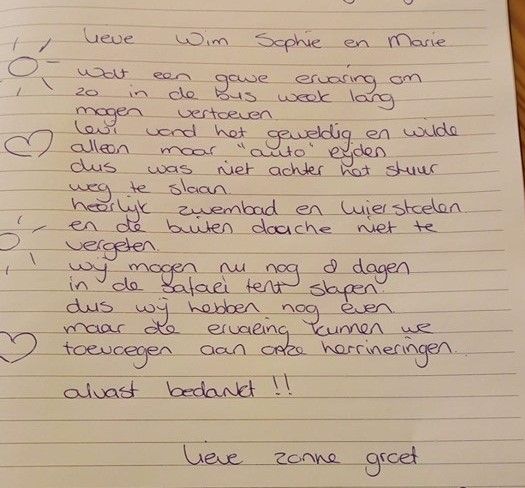 lieve Wim Sophie en Marie
Wat een gave ervaring om
zo in de bus week lang
mogen vertoeven
Levi vond het geweldig en wilde
alleen maar "auto" rijden
dus was niet achter het stuur
weg te slaan
heerlijk zwembad en luierstoelen
en de buiten douche niet te
vergeten
wij mogen nu nog 8 dagen
in de safari tent slapen
dus wij hebben nog even
maar de ervaring kunnen we
toevoegen aan onze herrineringen
alvast bedankt !!
lieve zonne groet